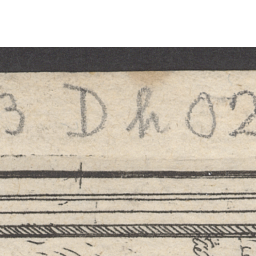 3 D h 02